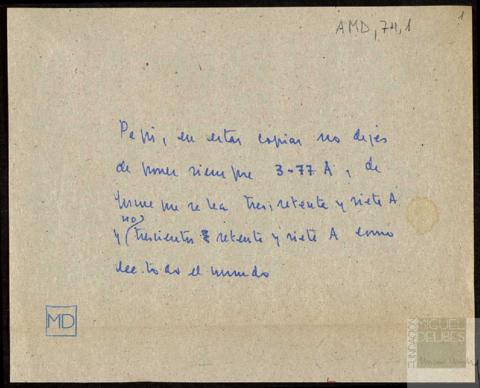 AMD, 74, 1
1
Pepi, en estas copias no dejes
de poner siempre 3-77 A, de
forma que se lea tres, setenta y siete A
y (no) trescientos setenta y siete A como
lee todo el mundo
MD
FUNDACIÓN
MIGUEL
DELIBES